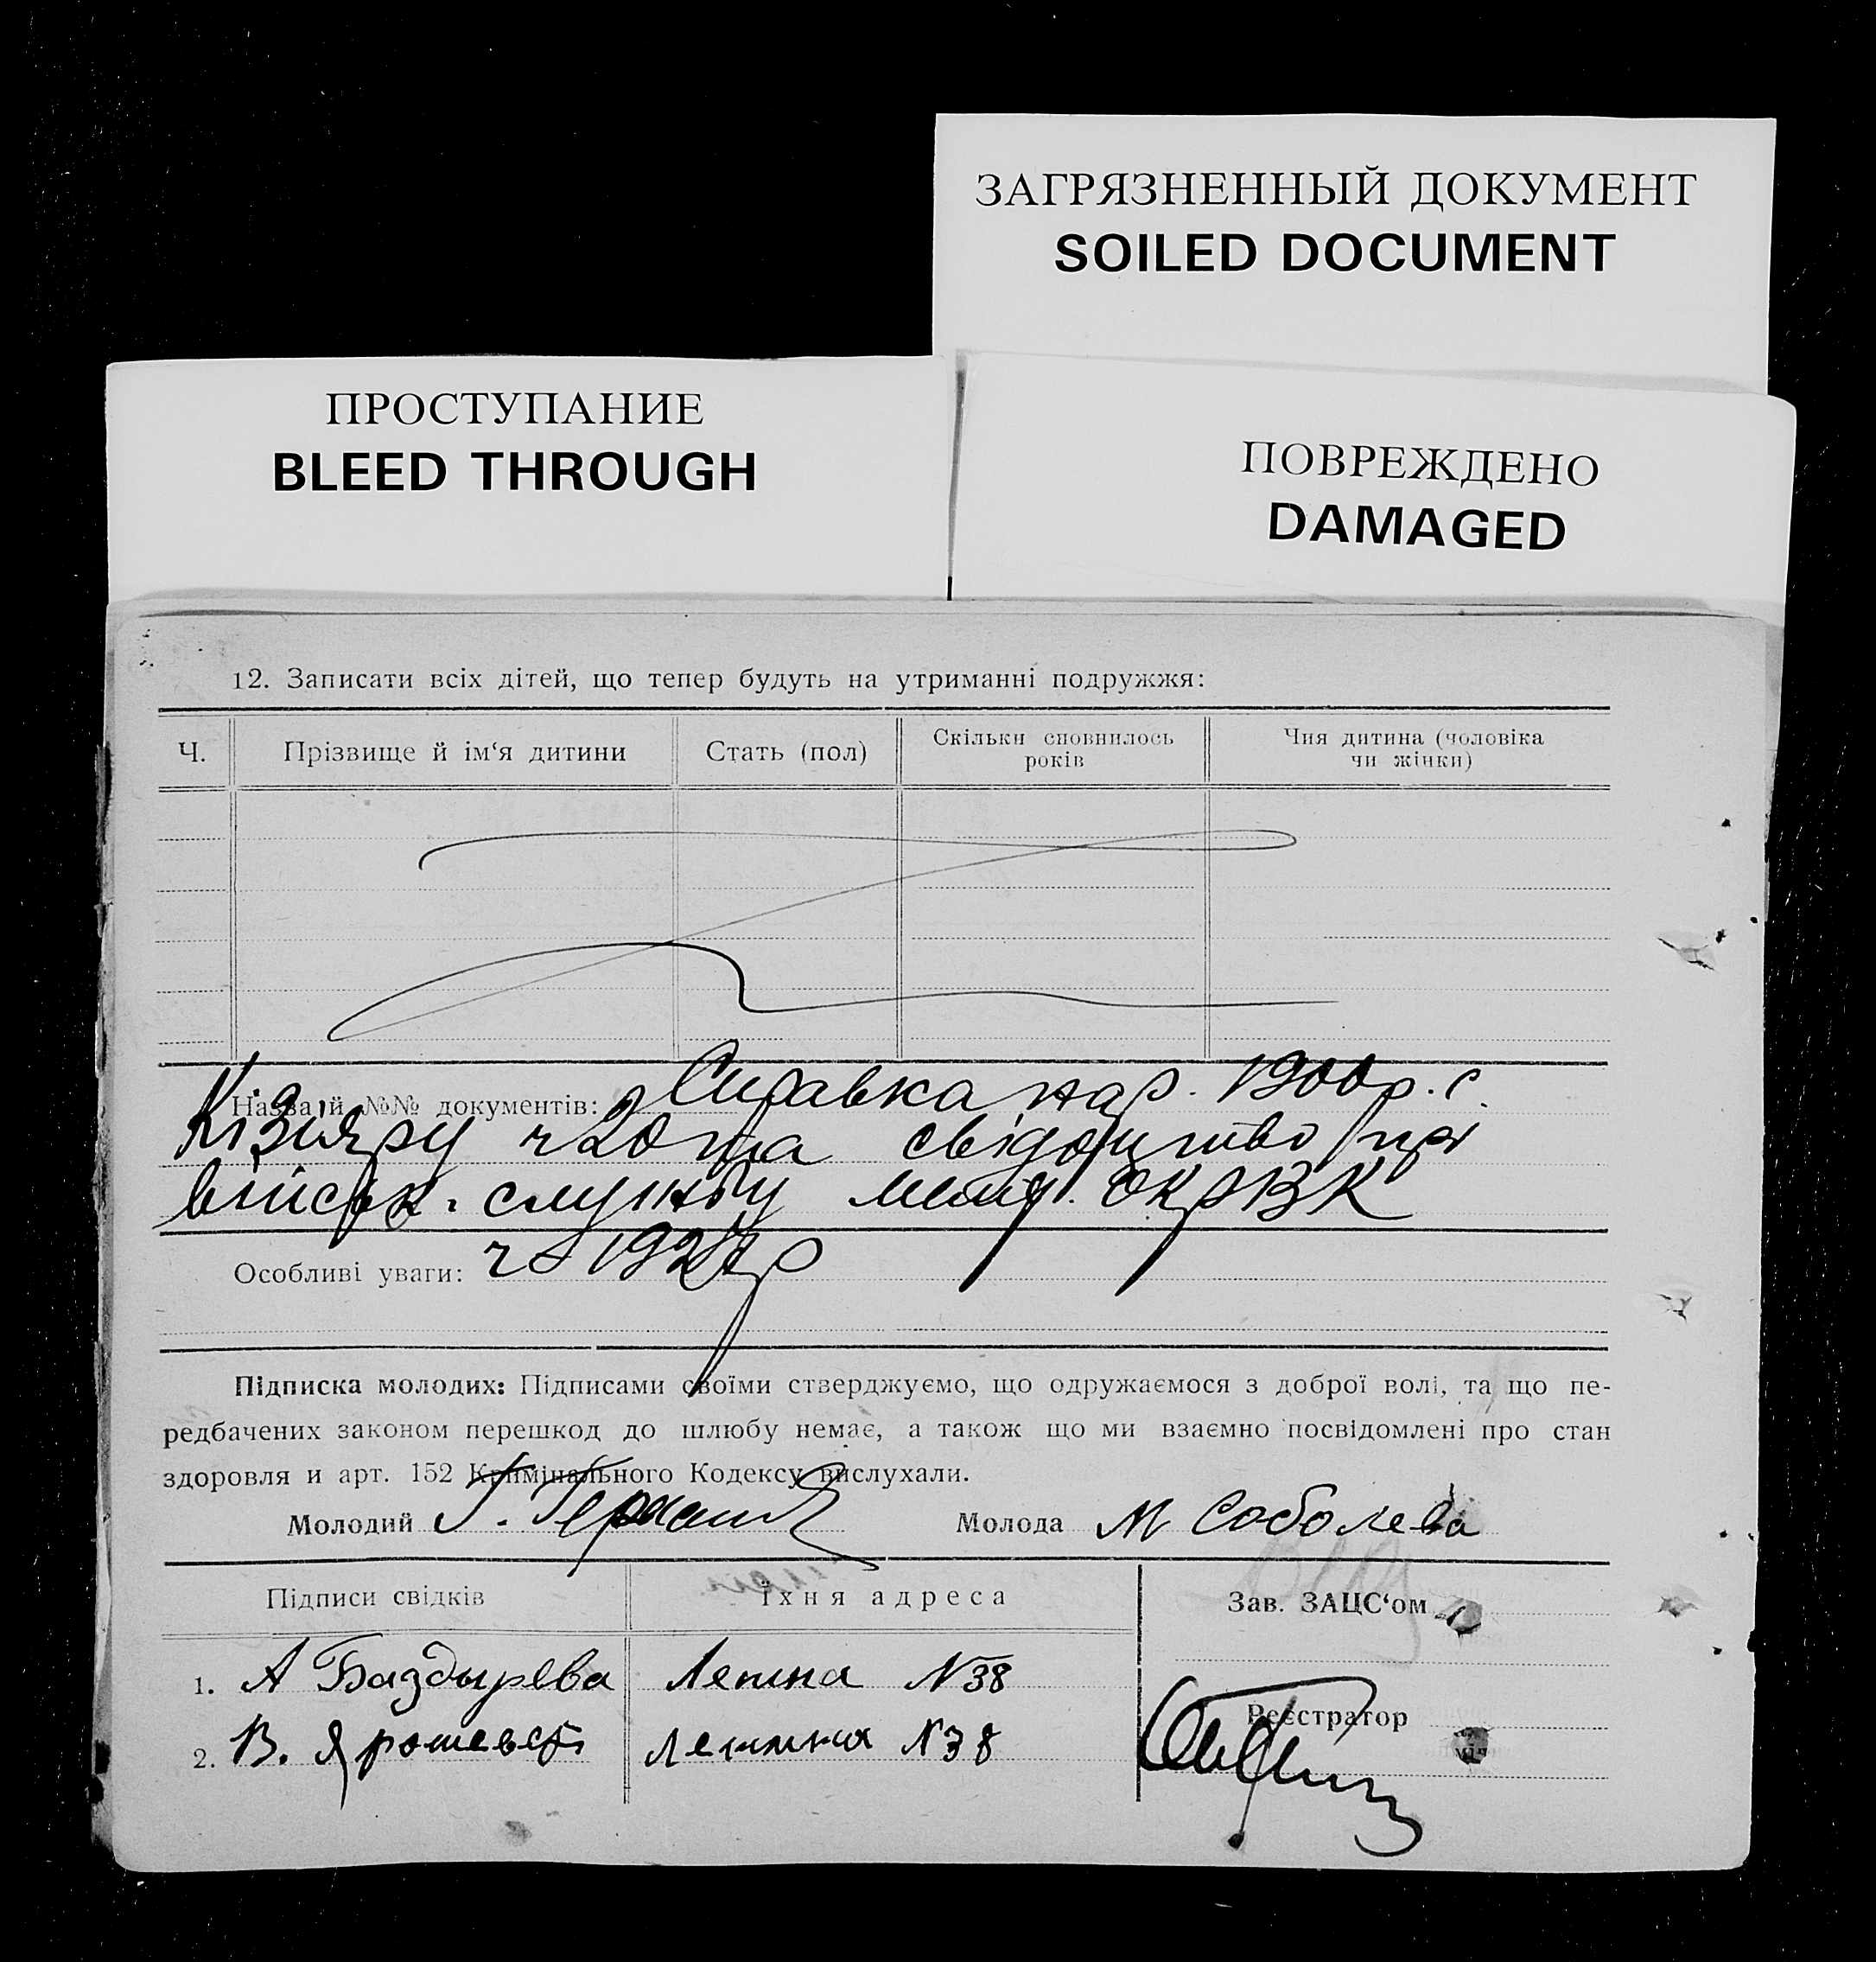 ЗАГРЯЗНЕННЫЙ ДОКУМЕНТ
SOILED DOCUMENT
ПРОСТУПАНИЕ
BLEED THROUGH
ПОВРЕЖДЕНО
DAMAGED
12. Записати всіх дітей, що тепер будуть на утриманні подружжя:
Ч.
Прізвище й ім‘я дитини
Стать (пол)
Скільки сповнилось
років
Чия дитина (чоловіка
чи жінки)
Назва й №№ документів: Справка нар. 1900 р. с.
свідоцтво про
війск. службу ОкрВК
Особливі уваги: 1927 р
Підписка молодих: Підписами своїми стверджуємо, що одружаємося з доброї волі, та що пе-
редбачених законом перешкод до шлюбу немає, а також що ми взаємно посвідомлені про стан
здоровля и арт. 152 Кримінального Кодексу вислухали.
Молодий Г.
Молода М Соболева
Підписи свідків
їхня адреса
Зав. ЗАЦС‘ом
1. А Баздырева
Ленина N 38
Реєстратор
2. В.
Ленина N 38